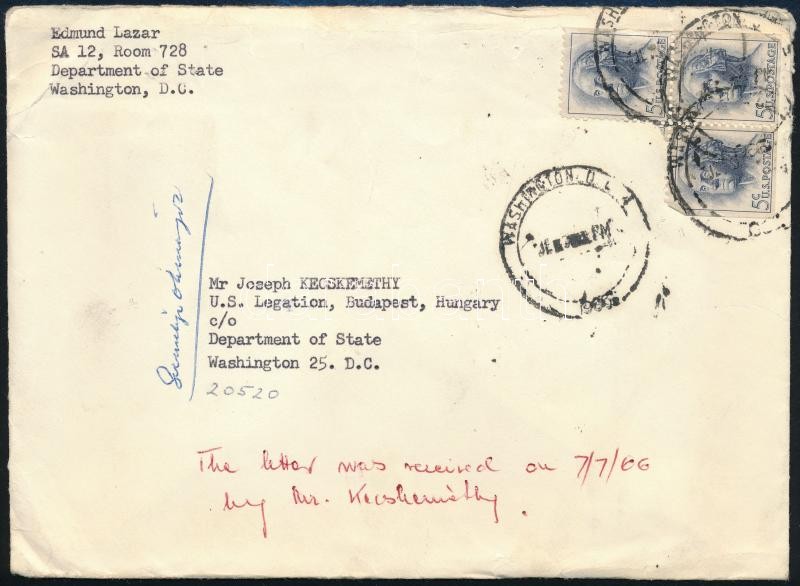 Edmund Lazar
SA 12, Room 728
Department of State
Washington, D.C.
5¢ U.S. POSTAGE
5¢ U.S. POSTAGE
5¢ U.S. POSTAGE
WASHINGTON, D.C.
Mr Joseph KECSKEMETHY
U.S. Legation, Budapest, Hungary
c/o
Department of State
Washington 25. D.C.
20520
The letter was received on 7/7/66
by Mr. Kecskeméthy